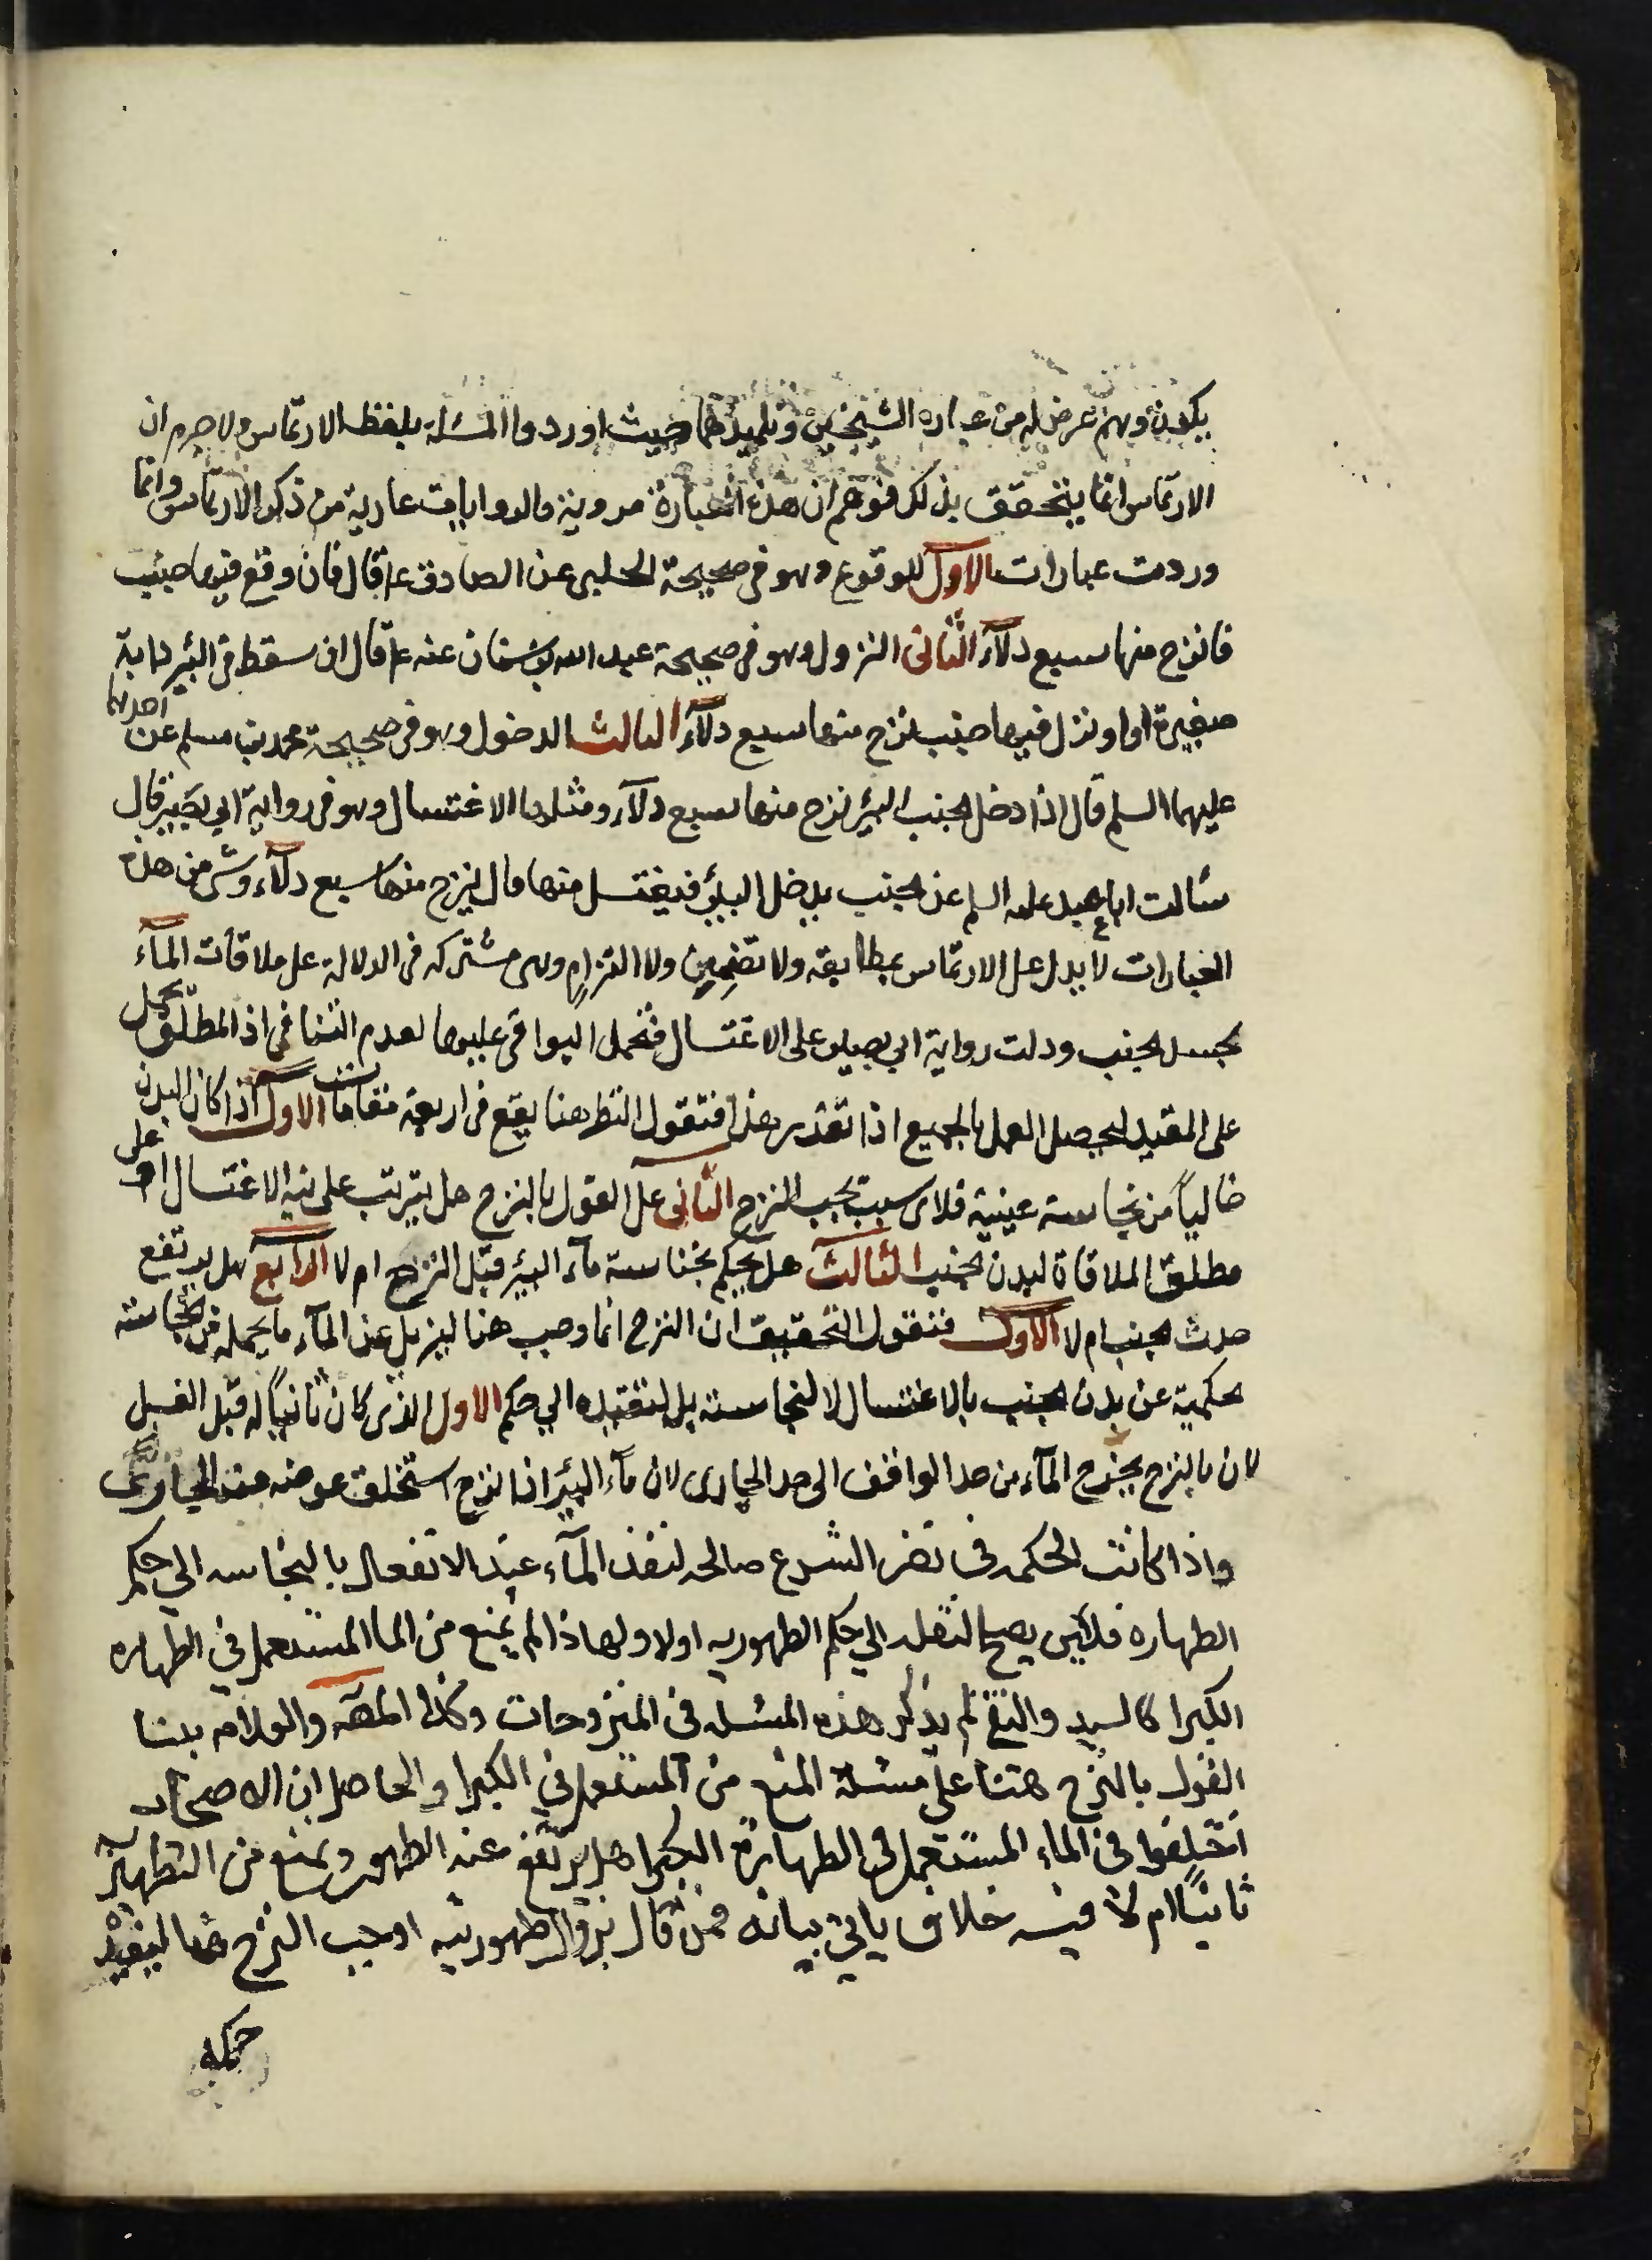 يكون وهم عرض له من عباره الشيخين وتلميذهما حيث اوردوا المسئلة بلفظ الارتماس ولا جرم ان
الارتماس انما يتحقق بذلك فتوهم ان هذه العبارة مروية والروايات عارية من ذكر الارتماس وانما
وردت عبارات الاول الوقوع وهو في صحيحة الحلبي عن الصادق ع قال فان وقع فيها جنب
فانزح منها سبع دلآء الثاني النزول وهو في صحيحة عبد الله بن سنان عنه ع قال ان سقط في البئر دابة
صغيرة او نزل فيها جنب نزح منها سبع دلآء الثالث الدخول وهو في صحيحة محمد بن مسلم عن احدهما
عليهما السلم قال اذا دخل الجنب البئر نزح منها سبع دلآء ومثلها الاغتسال وهو في رواية ابي بصير قال
سئالت ابا عبد عليه السلم عن الجنب يدخل البئر فيغتسل منها قال ينزح منها سبع دلآء وشئ من هذه
العبارات لا يدل على الارتماس بمطابقه ولا تضمين ولا التزام وهي مشتركه في الدلالة على ملاقات المآء
لجسد الجنب ودلت رواية ابي بصير على الاغتسال فتحمل البواقي عليها لعدم التنافي اذ المطلق يحمل
على المقيد ليحصل العمل بالجميع اذا تقرر هذا فنقول النظر هنا يقع في اربعة مقامات الاول اذا كان البدن
خالياً من نجاسة عينية فلاى سبب يجب النزح الثاني على القول بالنزح هل يترتب على نيه الاغتسال او على
مطلق الملاقاة لبدن الجنب الثالث هل يحكم بنجاسة مآء البئر قبل النزح ام لا الرابع هل يرتفع
حدث الجنب ام لا الاول فنقول التحقيق ان النزح انما وجب هنا ليزيل عن المآء ما يحمله من نجاسته
حكمية عن بدن الجنب بالاغتسال لا لنجاسته بل لتقيده الي حكم الاول الذي كان ثانيا له قبل الغسل
لان بالنزح يخرج المآء من حد الواقف الى حد الجاري لان مآء البئر اذا نزح استخلف عوضه عند الجاري
واذا كانت الحكمه في نضر الشرع صالحه لنقل المآء عند الانفعال بالنجاسه الي حكم
الطهاره فلاين يصح لنقله الي حكم الطهوريه اولا ولهاذا لم يمنع من الما المستعمل في الطهاره
الكبرا كالسيد والتقي لم يذكر هذه المسئله في المنزوحات وكذا المصه والعلامه بنا
القول بالنزح هنا على مسئلة المنع من المستعمل في الكبرا والحاصل ان الاصحاب
اختلفوا في الماء المستعمل في الطهارة الكبرا هل يرتفع عنه الطهور ويمنع من التطهير
ثانياً ام لا فيه خلاف ياتي بيانه فمن قال بزوال طهوريته اوجب النزح هنا ليفيد
حكمه